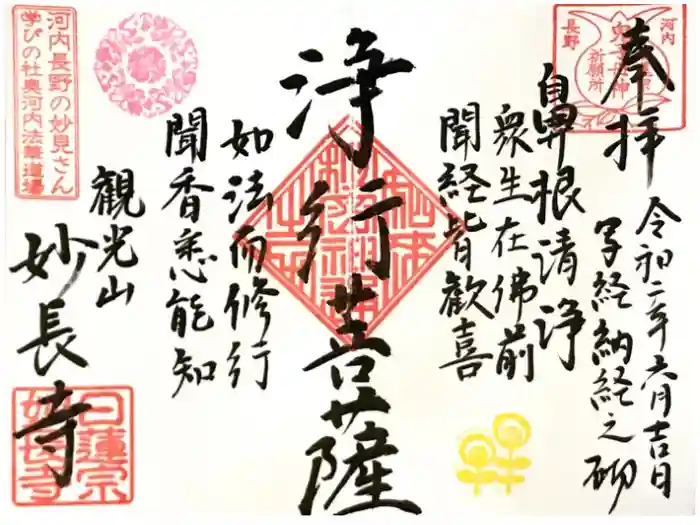 奉拝
令和二年六月吉日
写経納経之砌
鼻根清浄
衆生在佛前
聞経皆歓喜
浄行菩薩
如法而修行
聞香悉能知
観光山
妙長寺
河内
長野
鬼子母神
祈願所
河内長野の妙見さん
学びの社奥河内法華道場
日蓮宗
妙長寺